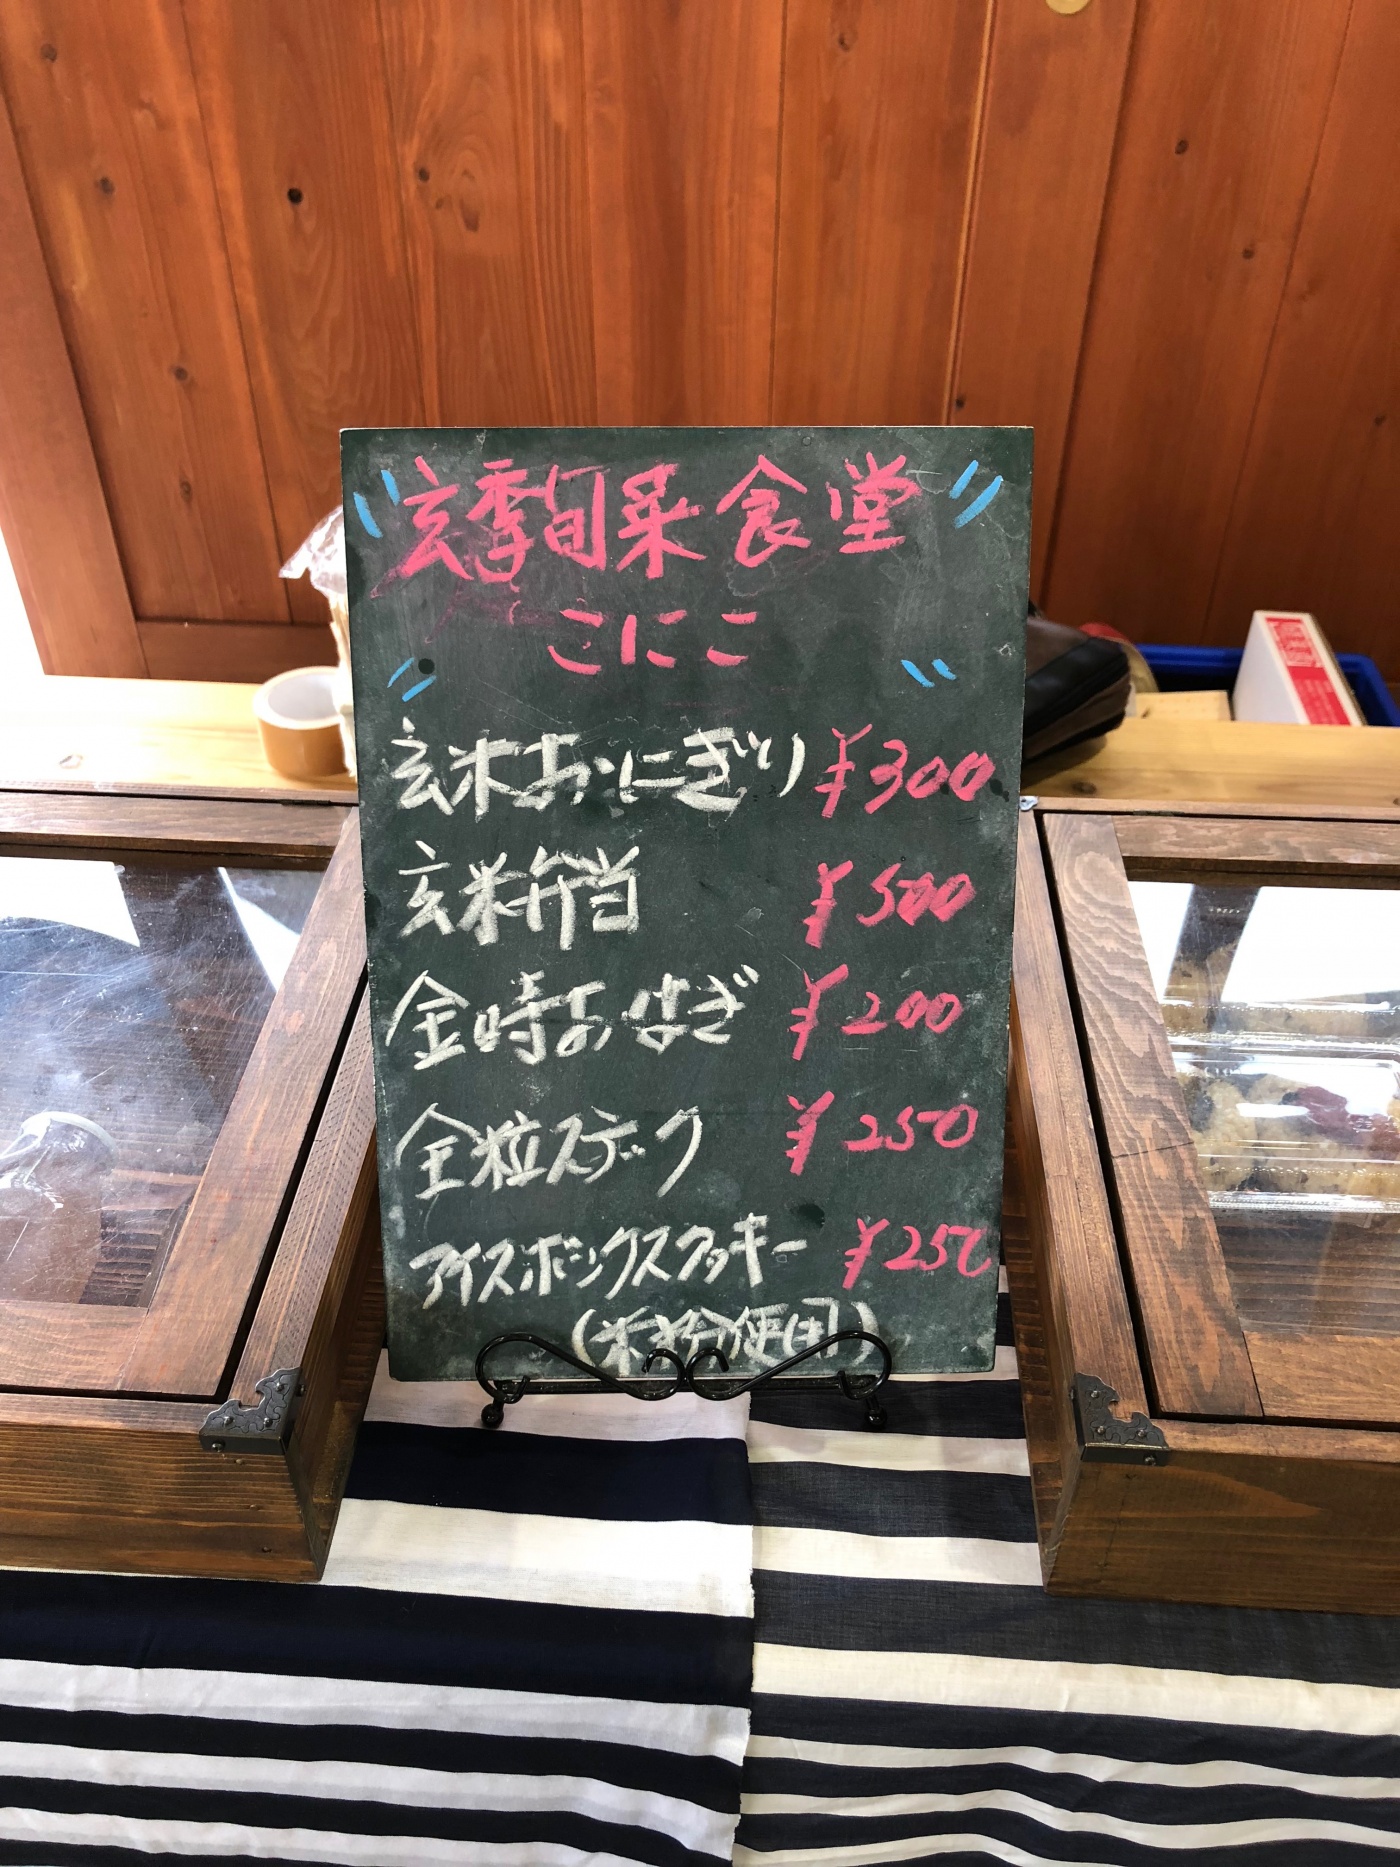 玄季旬菜食堂
こにこ
玄米おにぎり ¥300
玄米弁当 ¥500
金時おはぎ ¥200
全粒スティック ¥250
アイスボックスクッキー ¥250
(米粉使用)